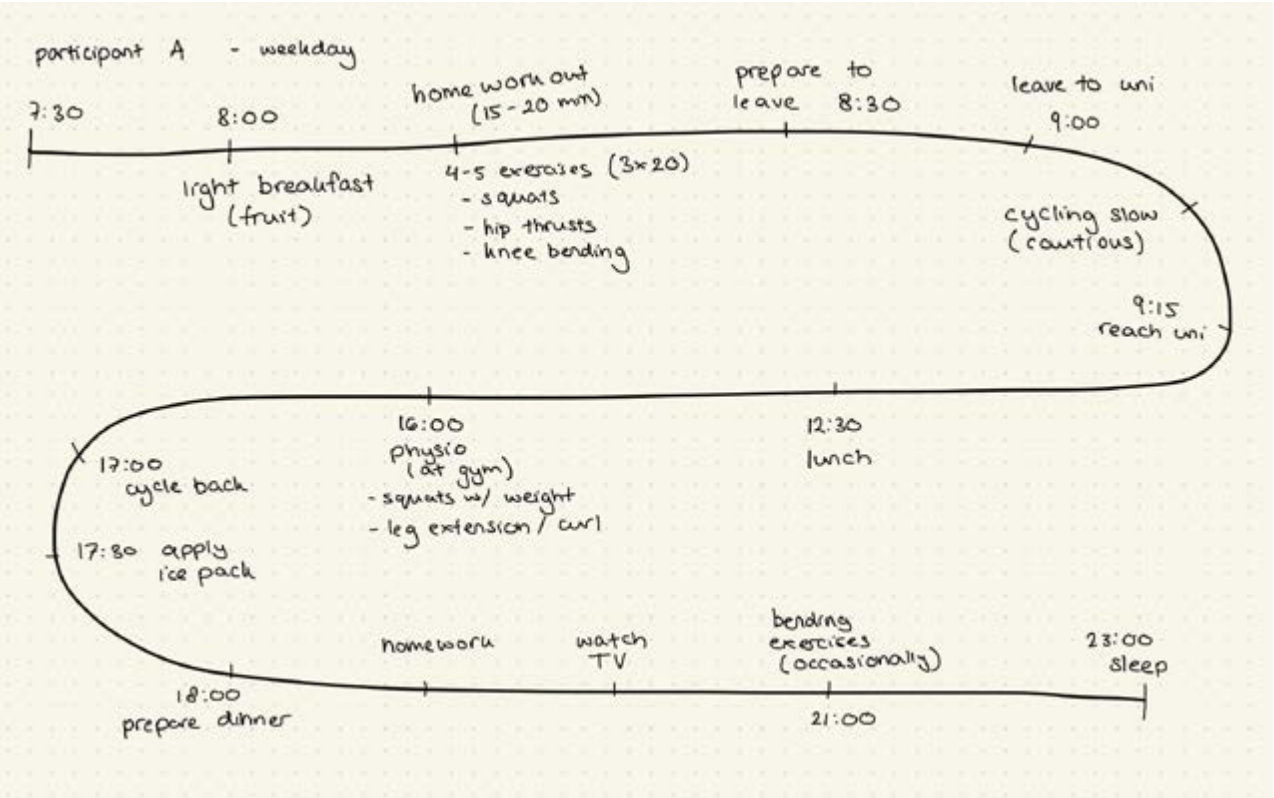 participant A - weekday
7:30
8:00
light breakfast
(fruit)
home work out
(15-20 min)
4-5 exercises (3x20)
- squats
- hip thrusts
- knee bending
prepare to
leave 8:30
leave to uni
9:00
cycling slow
(cautious)
9:15
reach uni
12:30
lunch
16:00
physio
(at gym)
- squats w/ weight
- leg extension / curl
17:00
cycle back
17:30 apply
ice pack
18:00
prepare dinner
homework
watch
TV
bending
exercises
(occasionally)
21:00
23:00
sleep